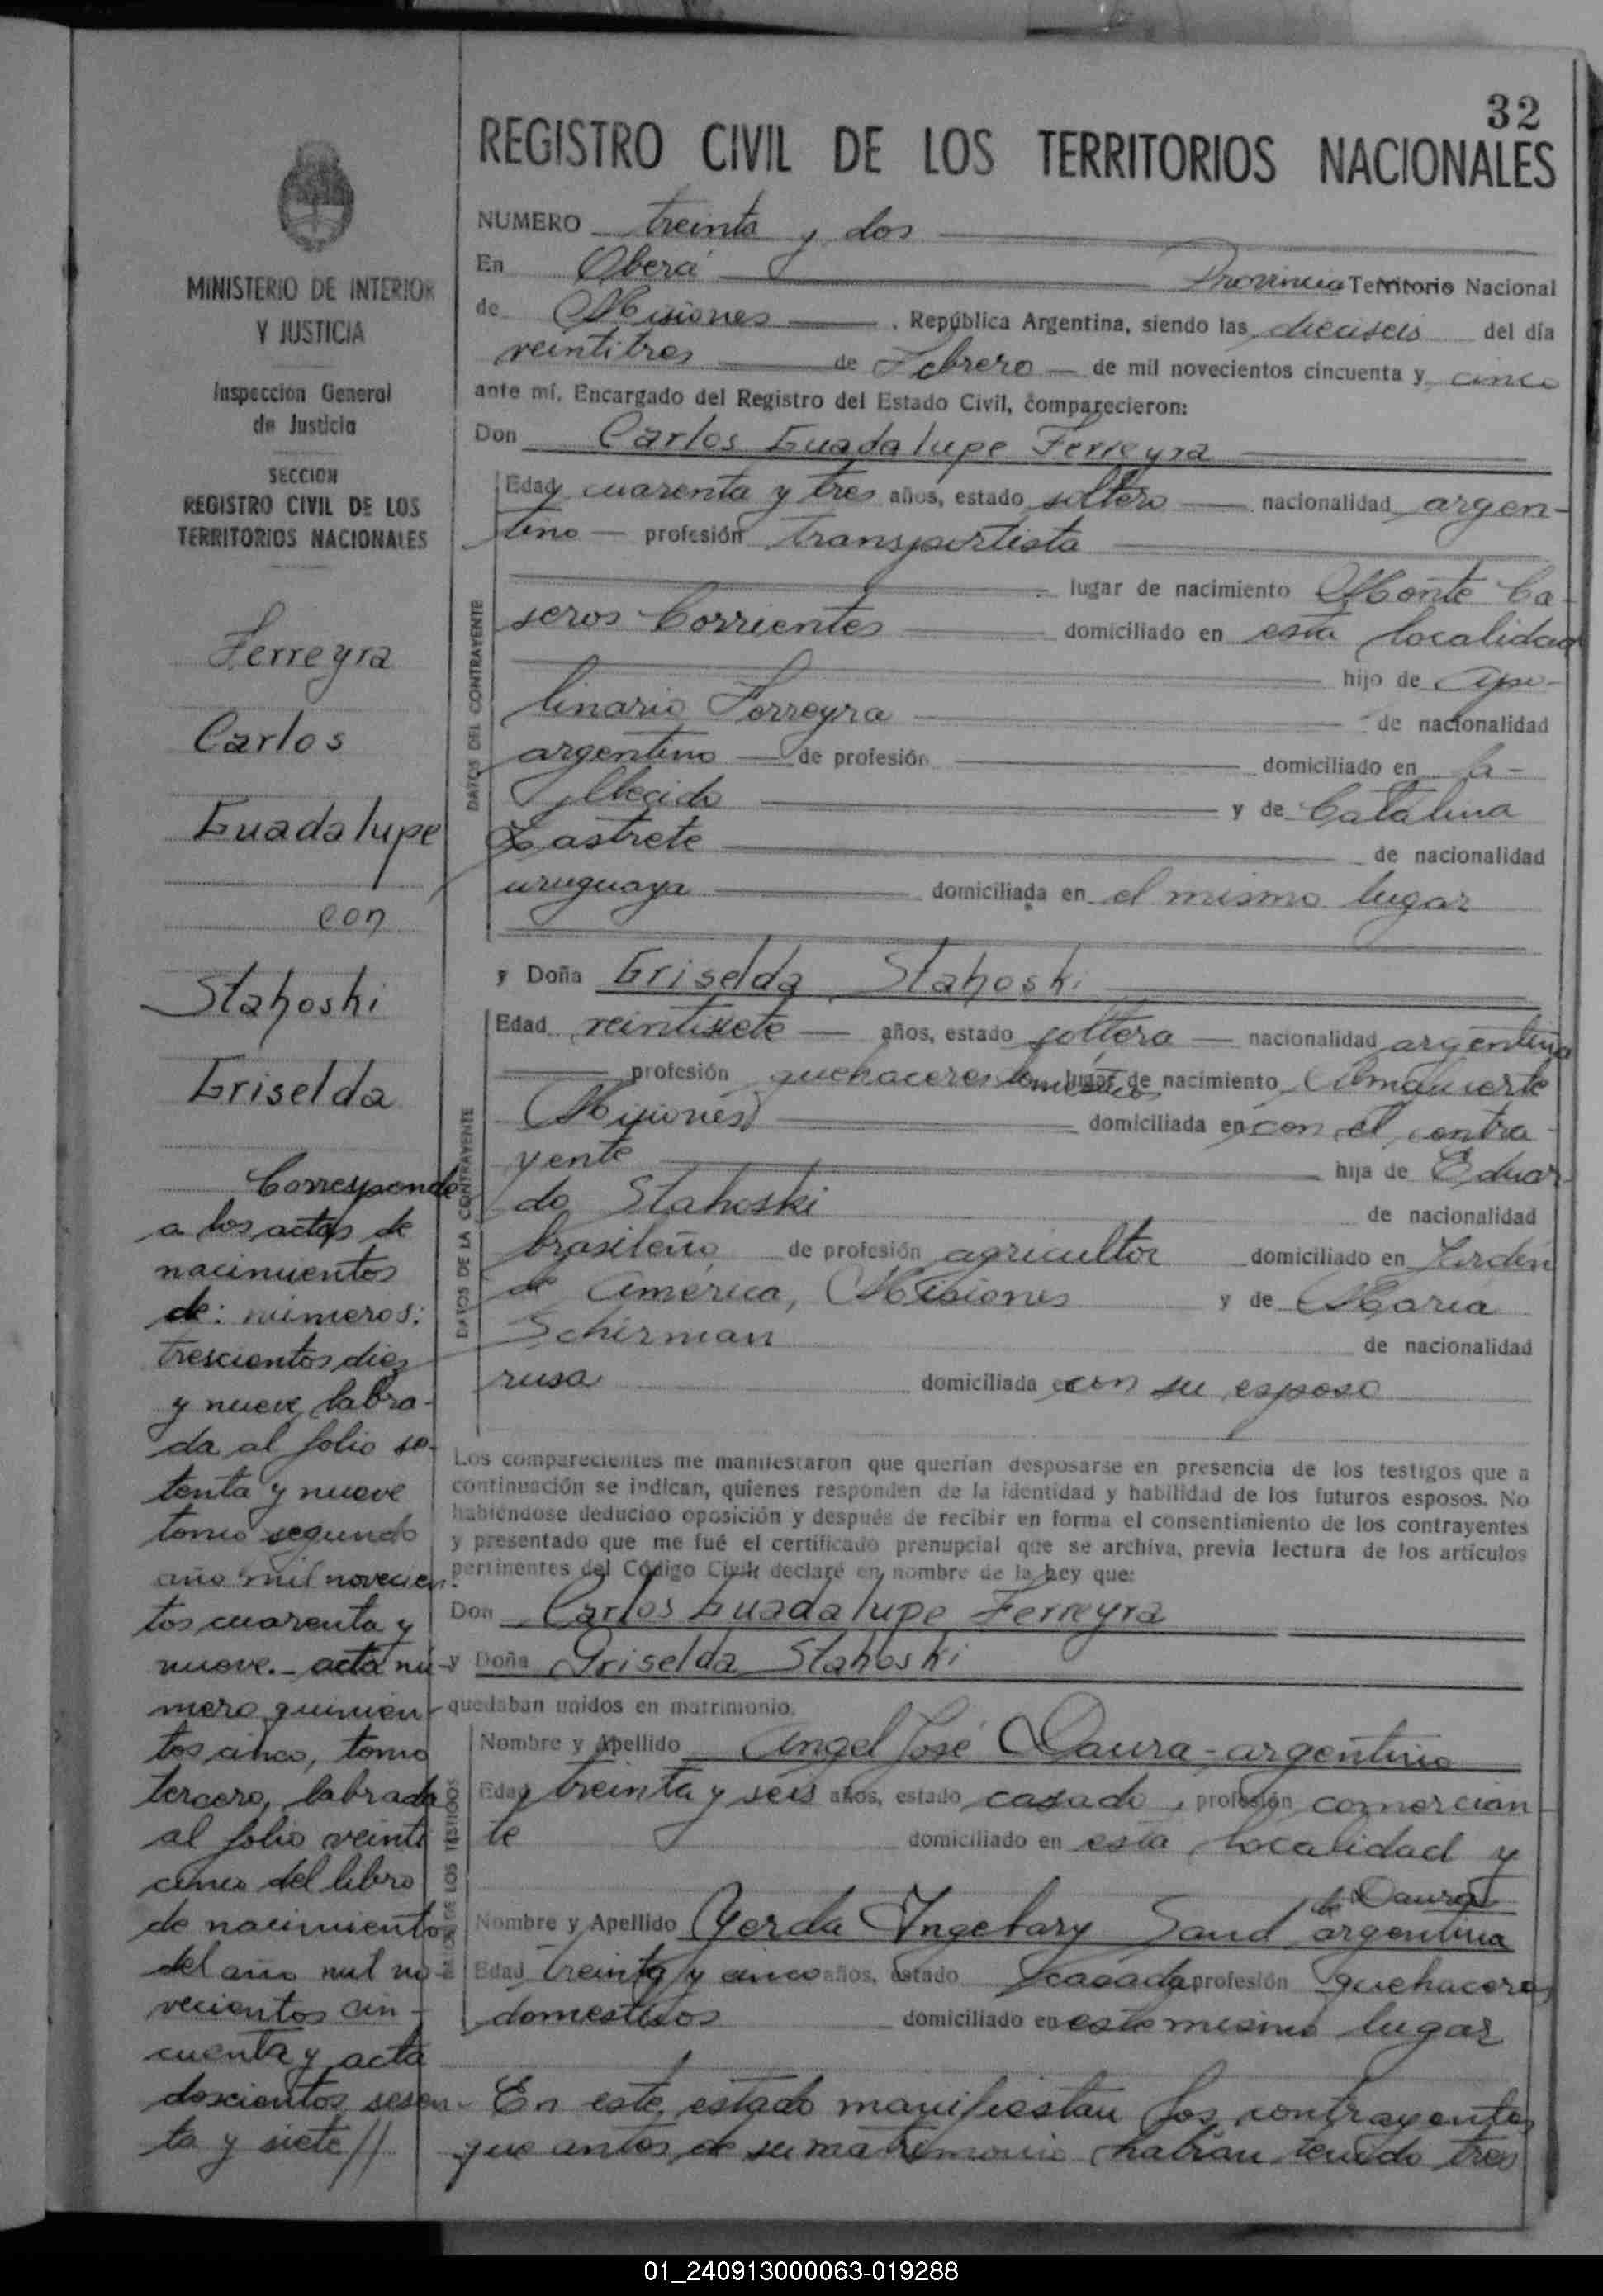 32
REGISTRO CIVIL DE LOS TERRITORIOS NACIONALES
MINISTERIO DE INTERIOR
Y JUSTICIA
Inspección General
de Justicia
SECCION
REGISTRO CIVIL DE LOS
TERRITORIOS NACIONALES
Ferreyra
Carlos
Guadalupe
con
Stahoski
Griselda
Corresponde
a las actas de
nacimientos
de: números:
trescientos diez
y nueve, labra-
da al folio se-
tenta y nueve
tomo segundo
año mil novecien-
tos cuarenta y
nueve.- acta nú-
mero quinien-
tos cinco, tomo
tercero, labrada
al folio veinti
cinco del libro
de nacimiento
del año mil no-
vecientos cin-
cuenta y acta
doscientos sesen-
ta y siete //
NUMERO treinta y dos
En Oberá Provincia Territorio Nacional
de Misiones , República Argentina, siendo las dieciseis del día
veintitres de Febrero de mil novecientos cincuenta y cinco
ante mí, Encargado del Registro del Estado Civil, comparecieron:
Don Carlos Guadalupe Ferreyra
DATOS DEL CONTRAYENTE
Edad cuarenta y tres años, estado soltero nacionalidad argen-
tino profesión transportista
lugar de nacimiento Monte Ca-
seros Corrientes domiciliado en esta localidad
hijo de Apo-
linario Ferreyra de nacionalidad
argentino de profesión domiciliado en fa-
llecido y de Catalina
Lastrete de nacionalidad
uruguaya domiciliada en el mismo lugar
y Doña Griselda Stahoski
DATOS DE LA CONTRAYENTE
Edad veintisiete años, estado soltera nacionalidad argentina
profesión quehaceres domésticos lugar de nacimiento Almafuerte
Misiones domiciliada en con el contra
yente hija de Eduar-
do Stahoski de nacionalidad
brasileño de profesión agricultor domiciliado en Jardín
de América, Misiones y de María
Scherman de nacionalidad
rusa domiciliada en con su esposo
Los comparecientes me manifestaron que querían desposarse en presencia de los testigos que a
continuación se indican, quienes responden de la identidad y habilidad de los futuros esposos. No
habiéndose deducido oposición y después de recibir en forma el consentimiento de los contrayentes
y presentado que me fué el certificado prenupcial que se archiva, previa lectura de los artículos
pertinentes del Código Civil: declaré en nombre de la Ley que:
Don Carlos Guadalupe Ferreyra
y Doña Griselda Stahoski
quedaban unidos en matrimonio.
DATOS DE LOS TESTIGOS
Nombre y Apellido Angel José Daura - argentino
Edad treinta y seis años, estado casado , profesión comercian-
te domiciliado en esta localidad y
de Daura
Nombre y Apellido Gerda Ingebary Sand argentina
Edad treinta y cinco años, estado casada profesión quehaceres
domesticos domiciliado en este mismo lugar
En este estado manifiestan los contrayentes
que antes de su matrimonio habían tenido tres
01_240913000063-019288